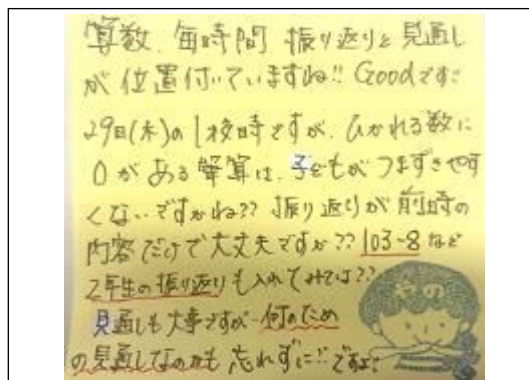 算数、毎時間 振り返りと見通し
が位置付いていますね!! Goodです!!
29日(木)の1校時ですが、ひかれる数に
0がある筆算は、子どもがつまずきやす
くないですかね?? 振り返りが前時の
内容だけで大丈夫ですか?? 103-8など
2年生の振り返りも入れてみては??
見通しも大事ですが、何のため
の見通しなのかも忘れずに!!ですよ!!
やの